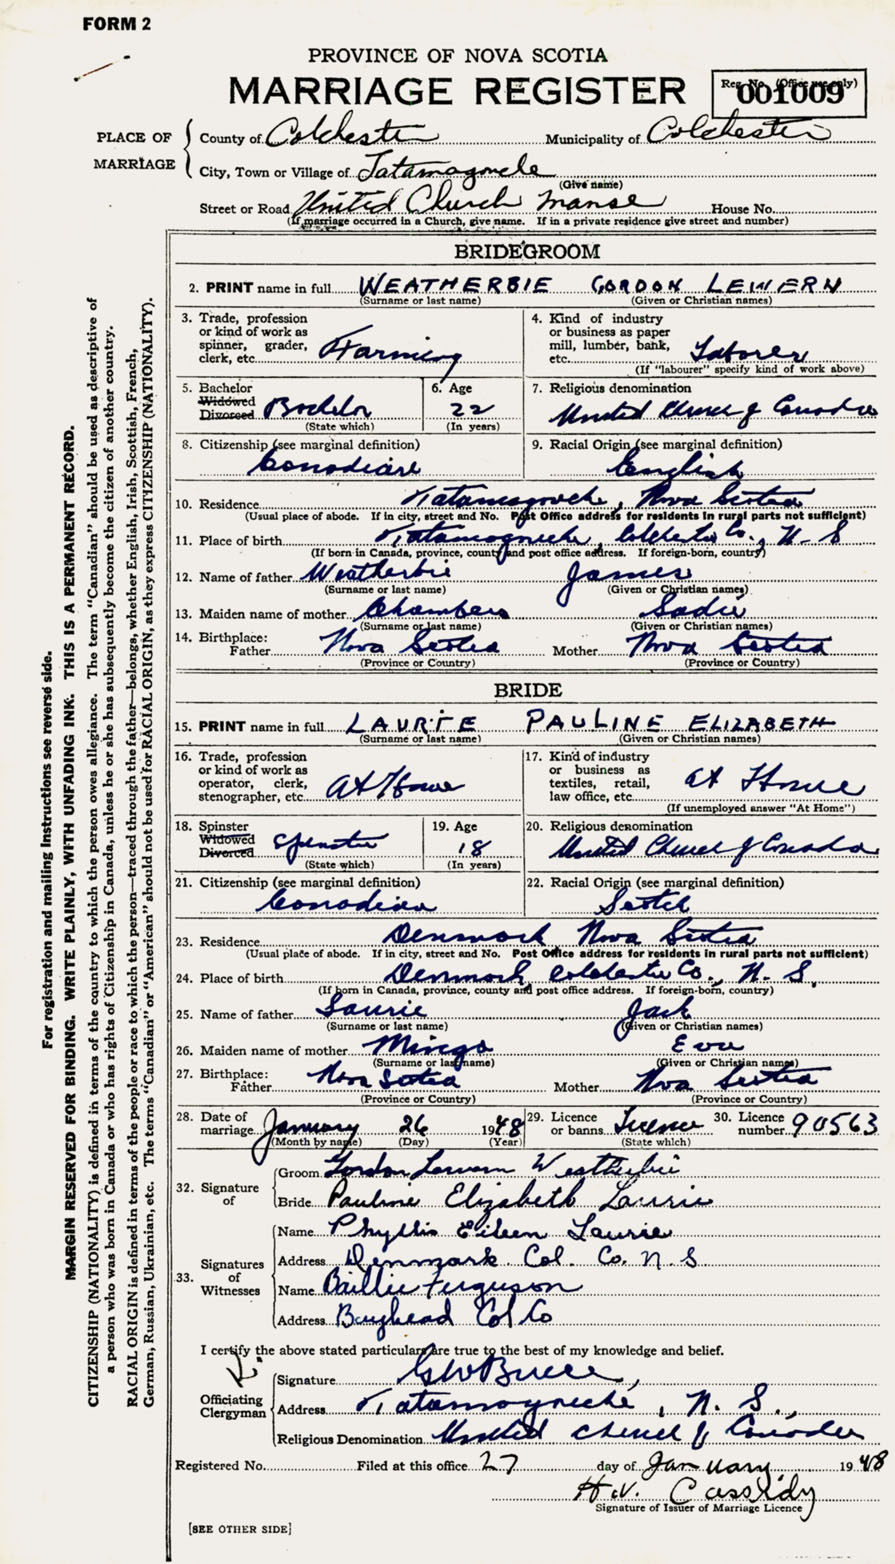 FORM 2
PROVINCE OF NOVA SCOTIA
MARRIAGE REGISTER
Reg. No. (Office use only)
001009
PLACE OF MARRIAGE
County of Colchester Municipality of Colchester
City, Town or Village of Tatamagouche
(Give name)
Street or Road United Church Manse House No.
(If marriage occurred in a Church, give name. If in a private residence give street and number)
BRIDEGROOM
2. PRINT name in full WEATHERBIE GORDON LEWERN
(Surname or last name) (Given or Christian names)
3. Trade, profession or kind of work as spinner, grader, clerk, etc. Farming
4. Kind of industry or business as paper mill, lumber, bank, etc. Laborer
(If "labourer" specify kind of work above)
5. Bachelor Widowed Divorced Bachelor
(State which)
6. Age 22
(In years)
7. Religious denomination
United Church of Canada
8. Citizenship (see marginal definition)
Canadian
9. Racial Origin (see marginal definition)
English
10. Residence Tatamagouche, Nova Scotia
(Usual place of abode. If in city, street and No. Post Office address for residents in rural parts not sufficient)
11. Place of birth Tatamagouche, Colchester Co., N. S
(If born in Canada, province, county and post office address. If foreign-born, country)
12. Name of father Weatherbie James
(Surname or last name) (Given or Christian names)
13. Maiden name of mother Chambers Sadie
(Surname or last name) (Given or Christian names)
14. Birthplace: Father Nova Scotia Mother Nova Scotia
(Province or Country) (Province or Country)
BRIDE
15. PRINT name in full LAURIE PAULINE ELIZABETH
(Surname or last name) (Given or Christian names)
16. Trade, profession or kind of work as operator, clerk, stenographer, etc. At Home
17. Kind of industry or business as textiles, retail, law office, etc. At Home
(If unemployed answer "At Home")
18. Spinster Widowed Divorced Spinster
(State which)
19. Age 18
(In years)
20. Religious denomination
United Church of Canada
21. Citizenship (see marginal definition)
Canadian
22. Racial Origin (see marginal definition)
Scotch
23. Residence Denmark Nova Scotia
(Usual place of abode. If in city, street and No. Post Office address for residents in rural parts not sufficient)
24. Place of birth Denmark, Colchester Co., N. S.
(If born in Canada, province, county and post office address. If foreign-born, country)
25. Name of father Laurie Jack
(Surname or last name) (Given or Christian names)
26. Maiden name of mother Mingo Eva
(Surname or last name) (Given or Christian names)
27. Birthplace: Father Nova Scotia Mother Nova Scotia
(Province or Country) (Province or Country)
28. Date of marriage January 26 1948
(Month by name) (Day) (Year)
29. Licence or banns Licence
(State which)
30. Licence number 90563
32. Signature of
Groom Gordon Lewern Weatherbie
Bride Pauline Elizabeth Laurie
33. Signatures of Witnesses
Name Phyllis Eileen Laurie
Address Denmark Col. Co. N. S
Name Baillie Ferguson
Address Bayhead Col Co
I certify the above stated particulars are true to the best of my knowledge and belief.
Officiating Clergyman
Signature GW Bruce
Address Tatamagouche, N. S.,
Religious Denomination United Church of Canada
Registered No. Filed at this office 27 day of January, 1948
H.V. Cassidy
Signature of Issuer of Marriage Licence
[SEE OTHER SIDE]
For registration and mailing instructions see reverse side.
MARGIN RESERVED FOR BINDING. WRITE PLAINLY, WITH UNFADING INK. THIS IS A PERMANENT RECORD.
CITIZENSHIP (NATIONALITY) is defined in terms of the country to which the person owes allegiance. The term "Canadian" should be used as descriptive of
a person who was born in Canada or who has rights of Citizenship in Canada, unless he or she has subsequently become the citizen of another country.
RACIAL ORIGIN is defined in terms of the people or race to which the person—traced through the father—belongs, whether English, Irish, Scottish, French,
German, Russian, Ukrainian, etc. The terms "Canadian" or "American" should not be used for RACIAL ORIGIN, as they express CITIZENSHIP (NATIONALITY).